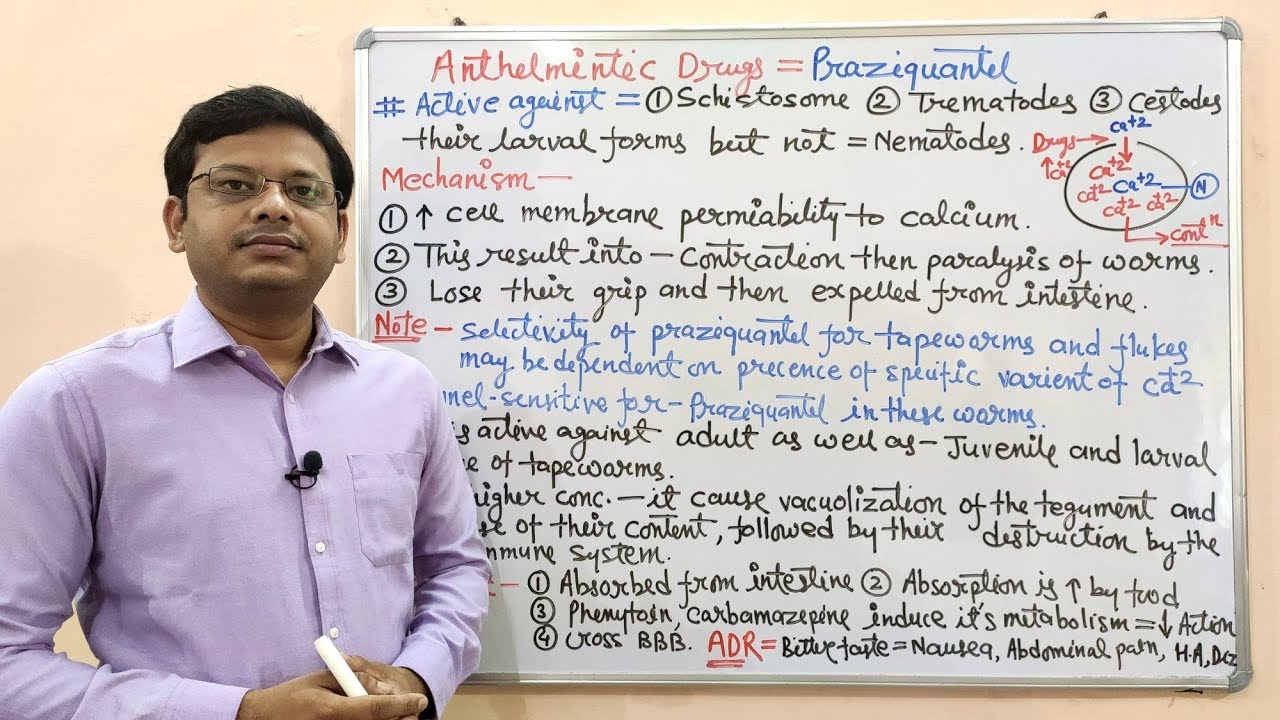 Anthelmintic Drugs = Praziquantel
# Active against = ① Schistosome ② Trematodes ③ Cestodes
their larval forms but not = Nematodes.
Ca+2
Drugs →
↑ Ca+2
Ca+2
Ca+2 Ca+2 N
Ca+2 Ca+2
→ contⁿ
Mechanism —
① ↑ cell membrane permiability to calcium.
② This result into — Contraction then paralysis of worms.
③ Lose their grip and then expelled from intestine.
Note — Selectivity of praziquantel for tapeworms and flukes
may be dependent on precence of specific varient of Ca+2
nel-sensitive for - Praziquantel in these worms.
is active against adult as well as - Juvenile and larval
e of tapeworms.
higher conc. — it cause vacuolization of the tegument and
se of their content, followed by their destruction by the
mmune system.
— ① Absorbed from intestine ② Absorption is ↑ by food
③ Phenytoin, carbamazepine induce it's metabolism = ↓ Action
④ Cross BBB. ADR = Bitter taste = Nausea, Abdominal pain, H.A, Dcz